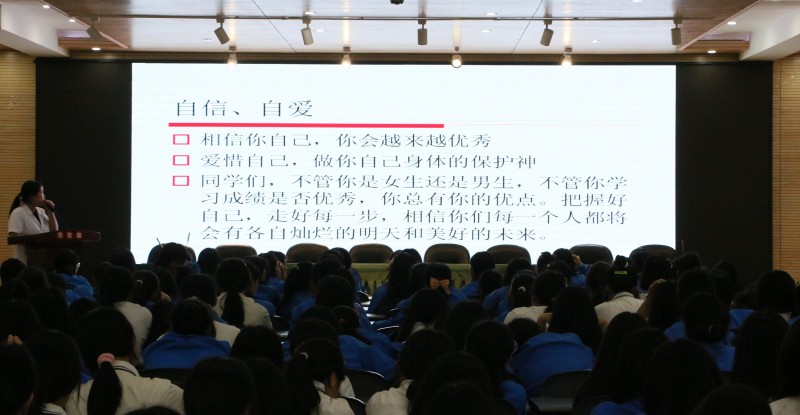 自信、自爱
相信你自己，你会越来越优秀
爱惜自己，做你自己身体的保护神
同学们，不管你是女生还是男生，不管你学
习成绩是否优秀，你总有你的优点。把握好
自己，走好每一步，相信你们每一个人都将
会有各自灿烂的明天和美好的未来。